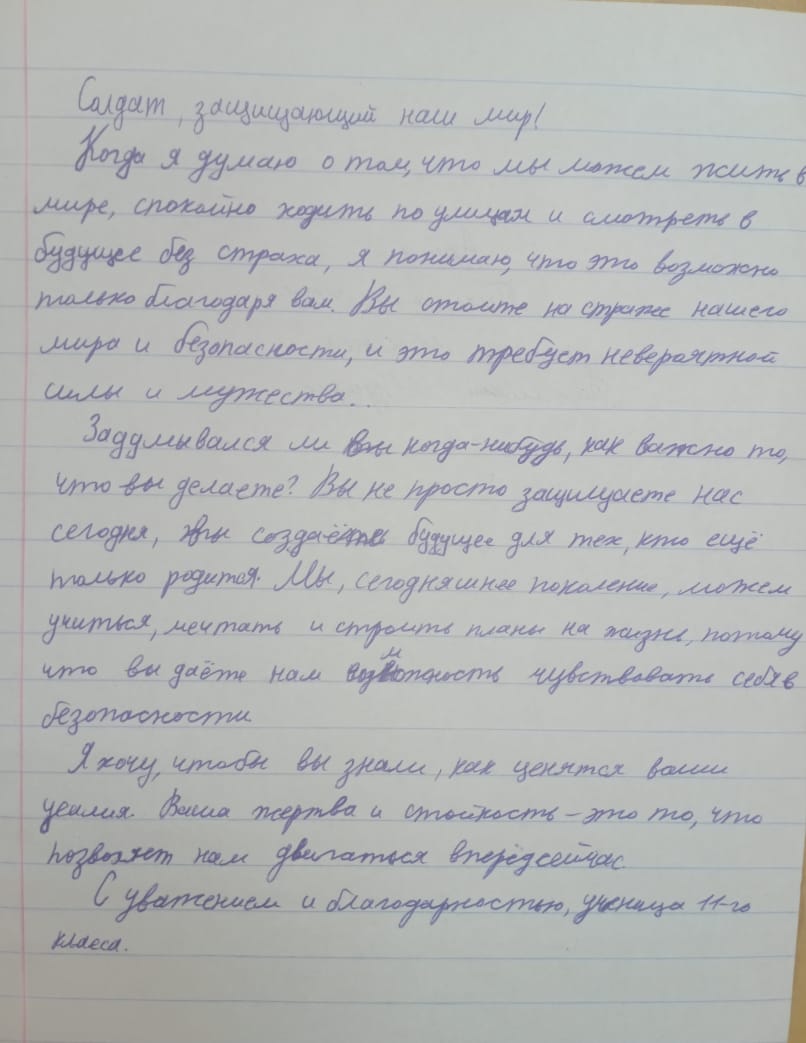 Солдат, защищающий наш мир!
Когда я думаю о том, что мы можем жить в
мире, спокойно ходить по улицам и смотреть в
будущее без страха, я понимаю, что это возможно
только благодаря вам. Вы стоите на страже нашего
мира и безопасности, и это требует невероятной
силы и мужества..
Задумывался ли вы когда-нибудь, как важно то,
что вы делаете? Вы не просто защищаете нас
сегодня, вы создаёте будущее для тех, кто ещё
только родится. Мы, сегодняшнее поколение, можем
учиться, мечтать и строить планы на жизнь, потому
что вы даёте нам возможность чувствовать себя в
безопасности.
Я хочу, чтобы вы знали, как ценятся ваши
усилия. Ваша жертва и стойкость – это то, что
позволяет нам двигаться вперёд сейчас.
С уважением и благодарностью, ученица 11-го
класса.